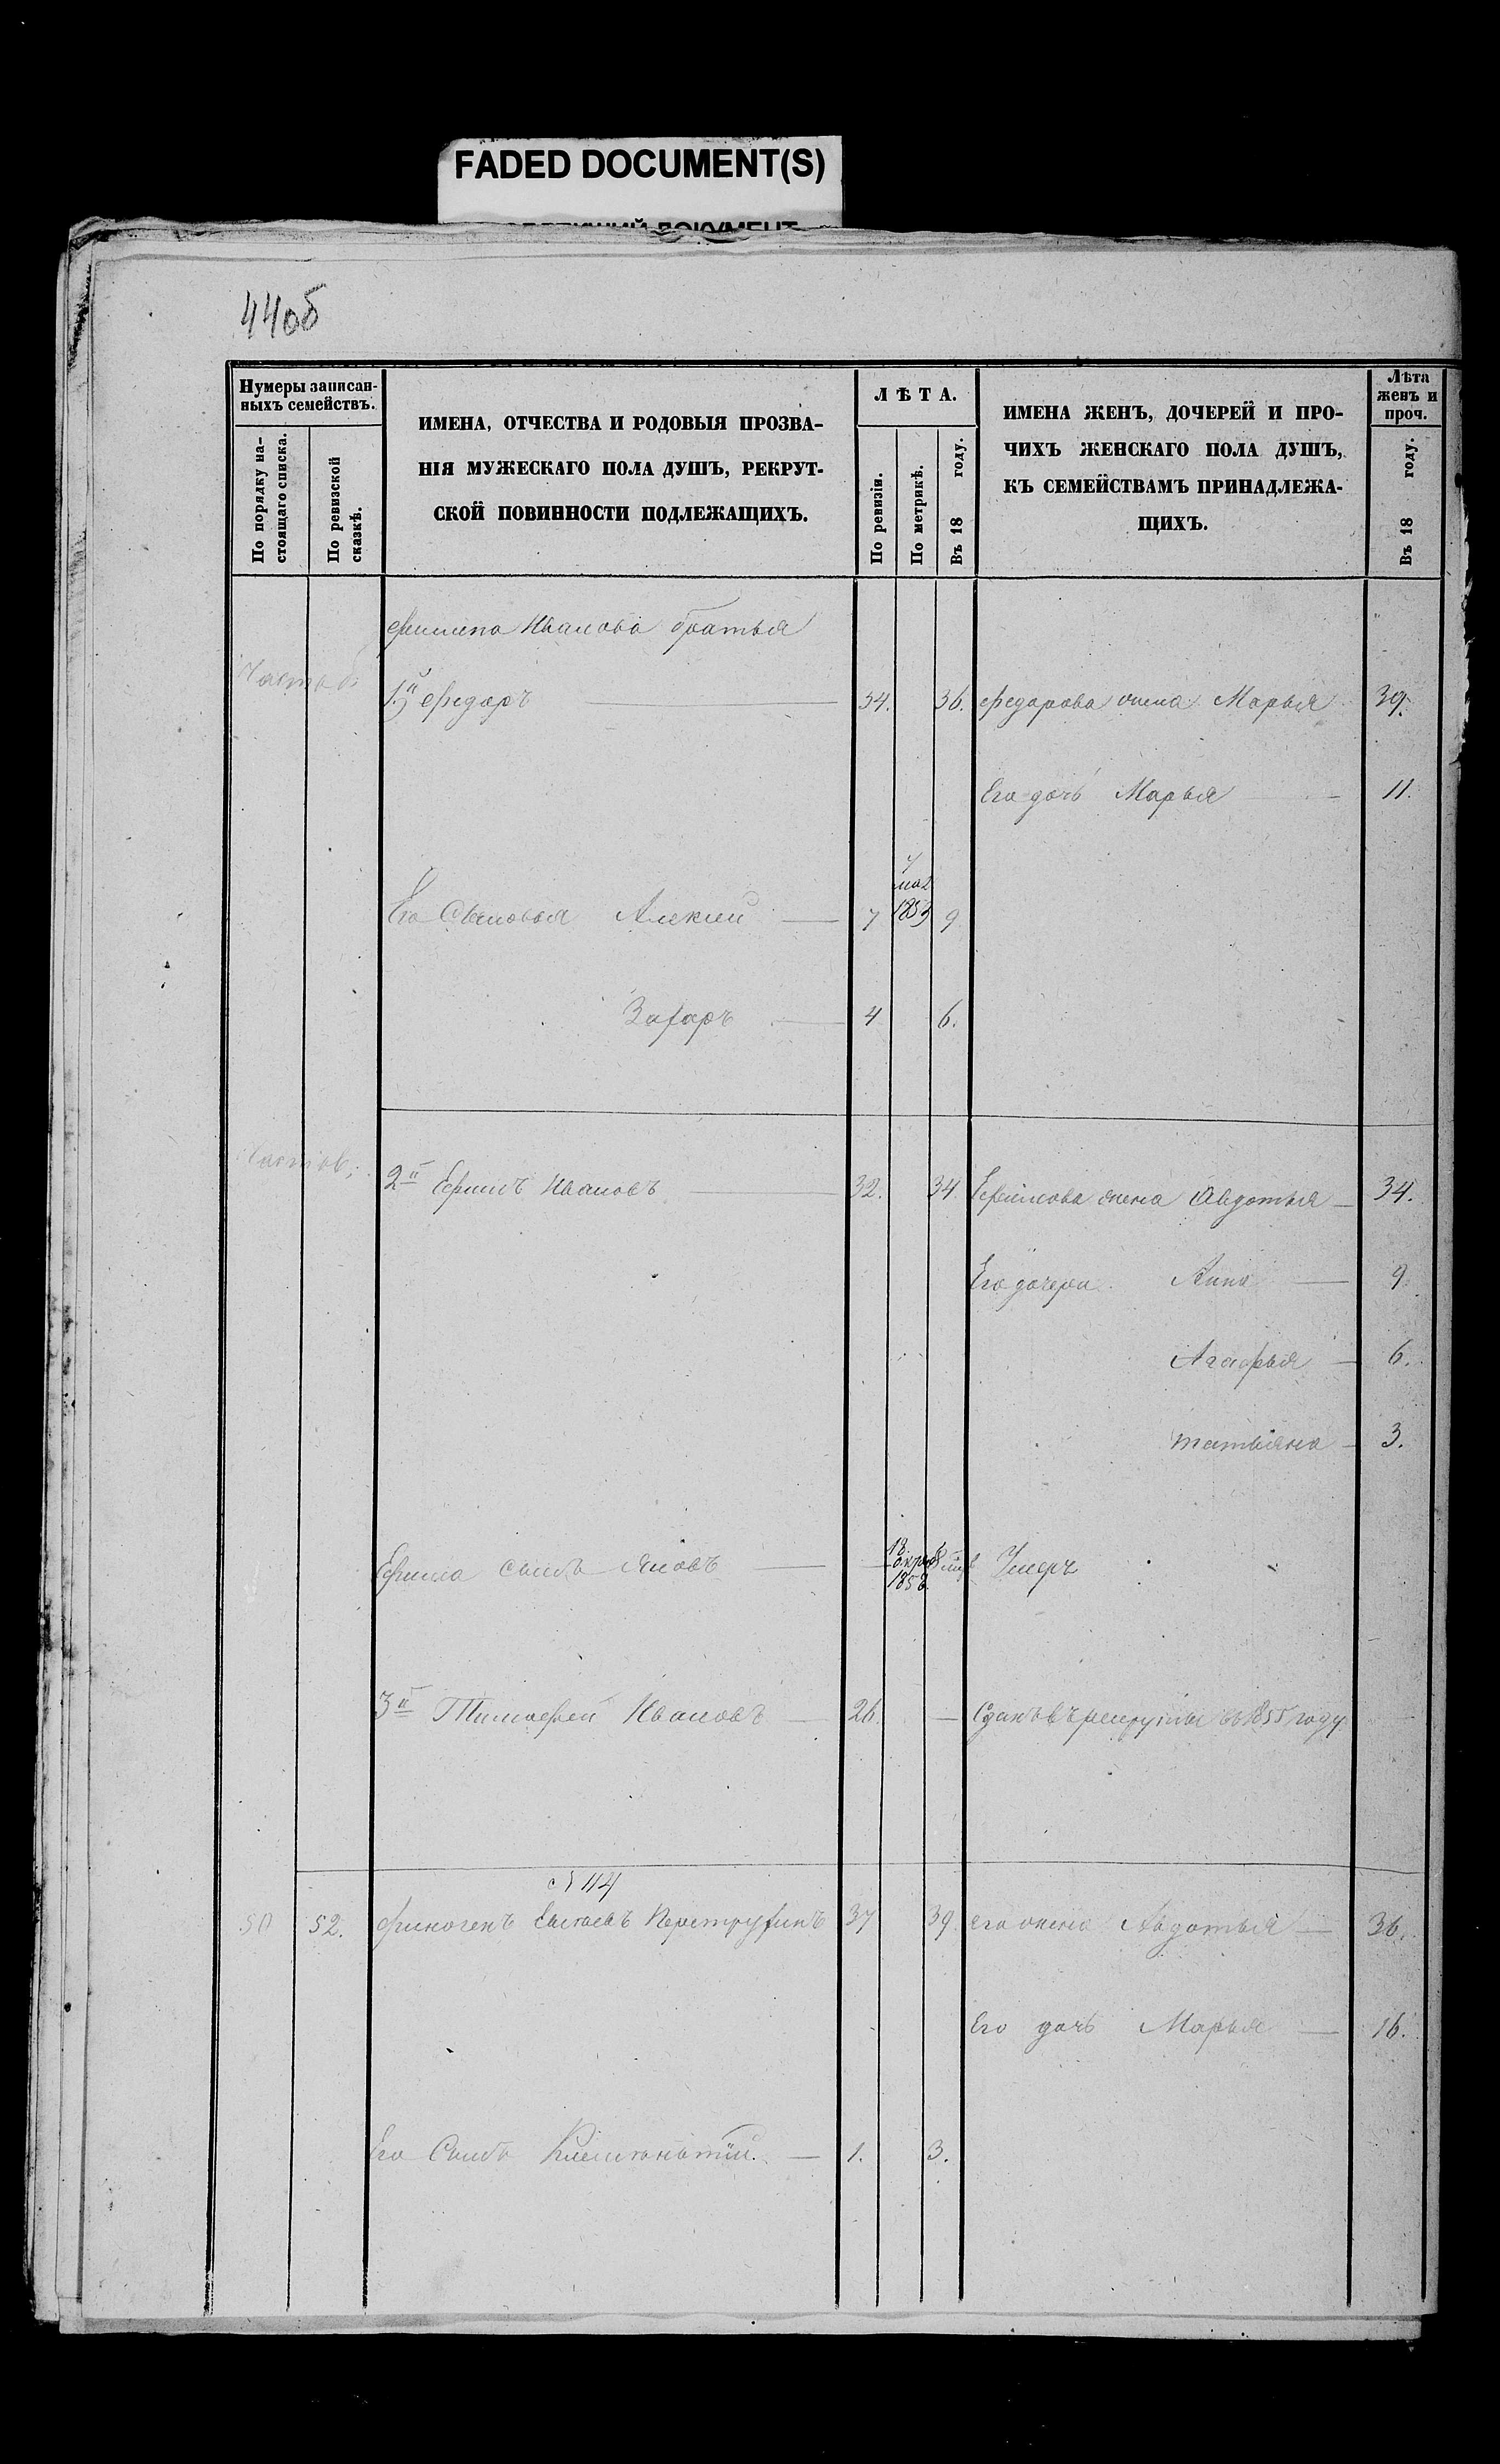 FADED DOCUMENT(S)
44об
Нумеры записан-
ныхъ семействъ.
По порядку на-
стоящаго списка.
По ревизской
сказкѣ.
ИМЕНА, ОТЧЕСТВА И РОДОВЫЯ ПРОЗВА-
НІЯ МУЖЕСКАГО ПОЛА ДУШЪ, РЕКРУТ-
СКОЙ ПОВИННОСТИ ПОДЛЕЖАЩИХЪ.
ЛѢТА.
По ревизіи.
По метрикѣ.
Въ 18 году.
ИМЕНА ЖЕНЪ, ДОЧЕРЕЙ И ПРО-
ЧИХЪ ЖЕНСКАГО ПОЛА ДУШЪ,
КЪ СЕМЕЙСТВАМЪ ПРИНАДЛЕЖА-
ЩИХЪ.
Лѣта
женъ и
проч.
Въ 18 году.
Филипа Иванова братья
1й Федоръ 34. 36. Федорова жена Марья 39.
Его дочь Марья 11.
Его Сыновья Алексѣй 7 9
Захаръ 4 6.
2й Ефимъ Ивановъ 32. 34. Ефимова жена Авдотья 34.
Его дочери Анна 9
Агафья 6.
Татьяна 3.
Ефима сынъ Яковъ 18 1858 Умеръ
3й Тимофей Ивановъ 26. Сданъ въ рекруты въ 1855 году
№ 114
50 52. Финогенъ Перетрухинъ 37 39. его жена Авдотья 36.
Его дочь Марья 16.
Его Сынъ 1. 3.